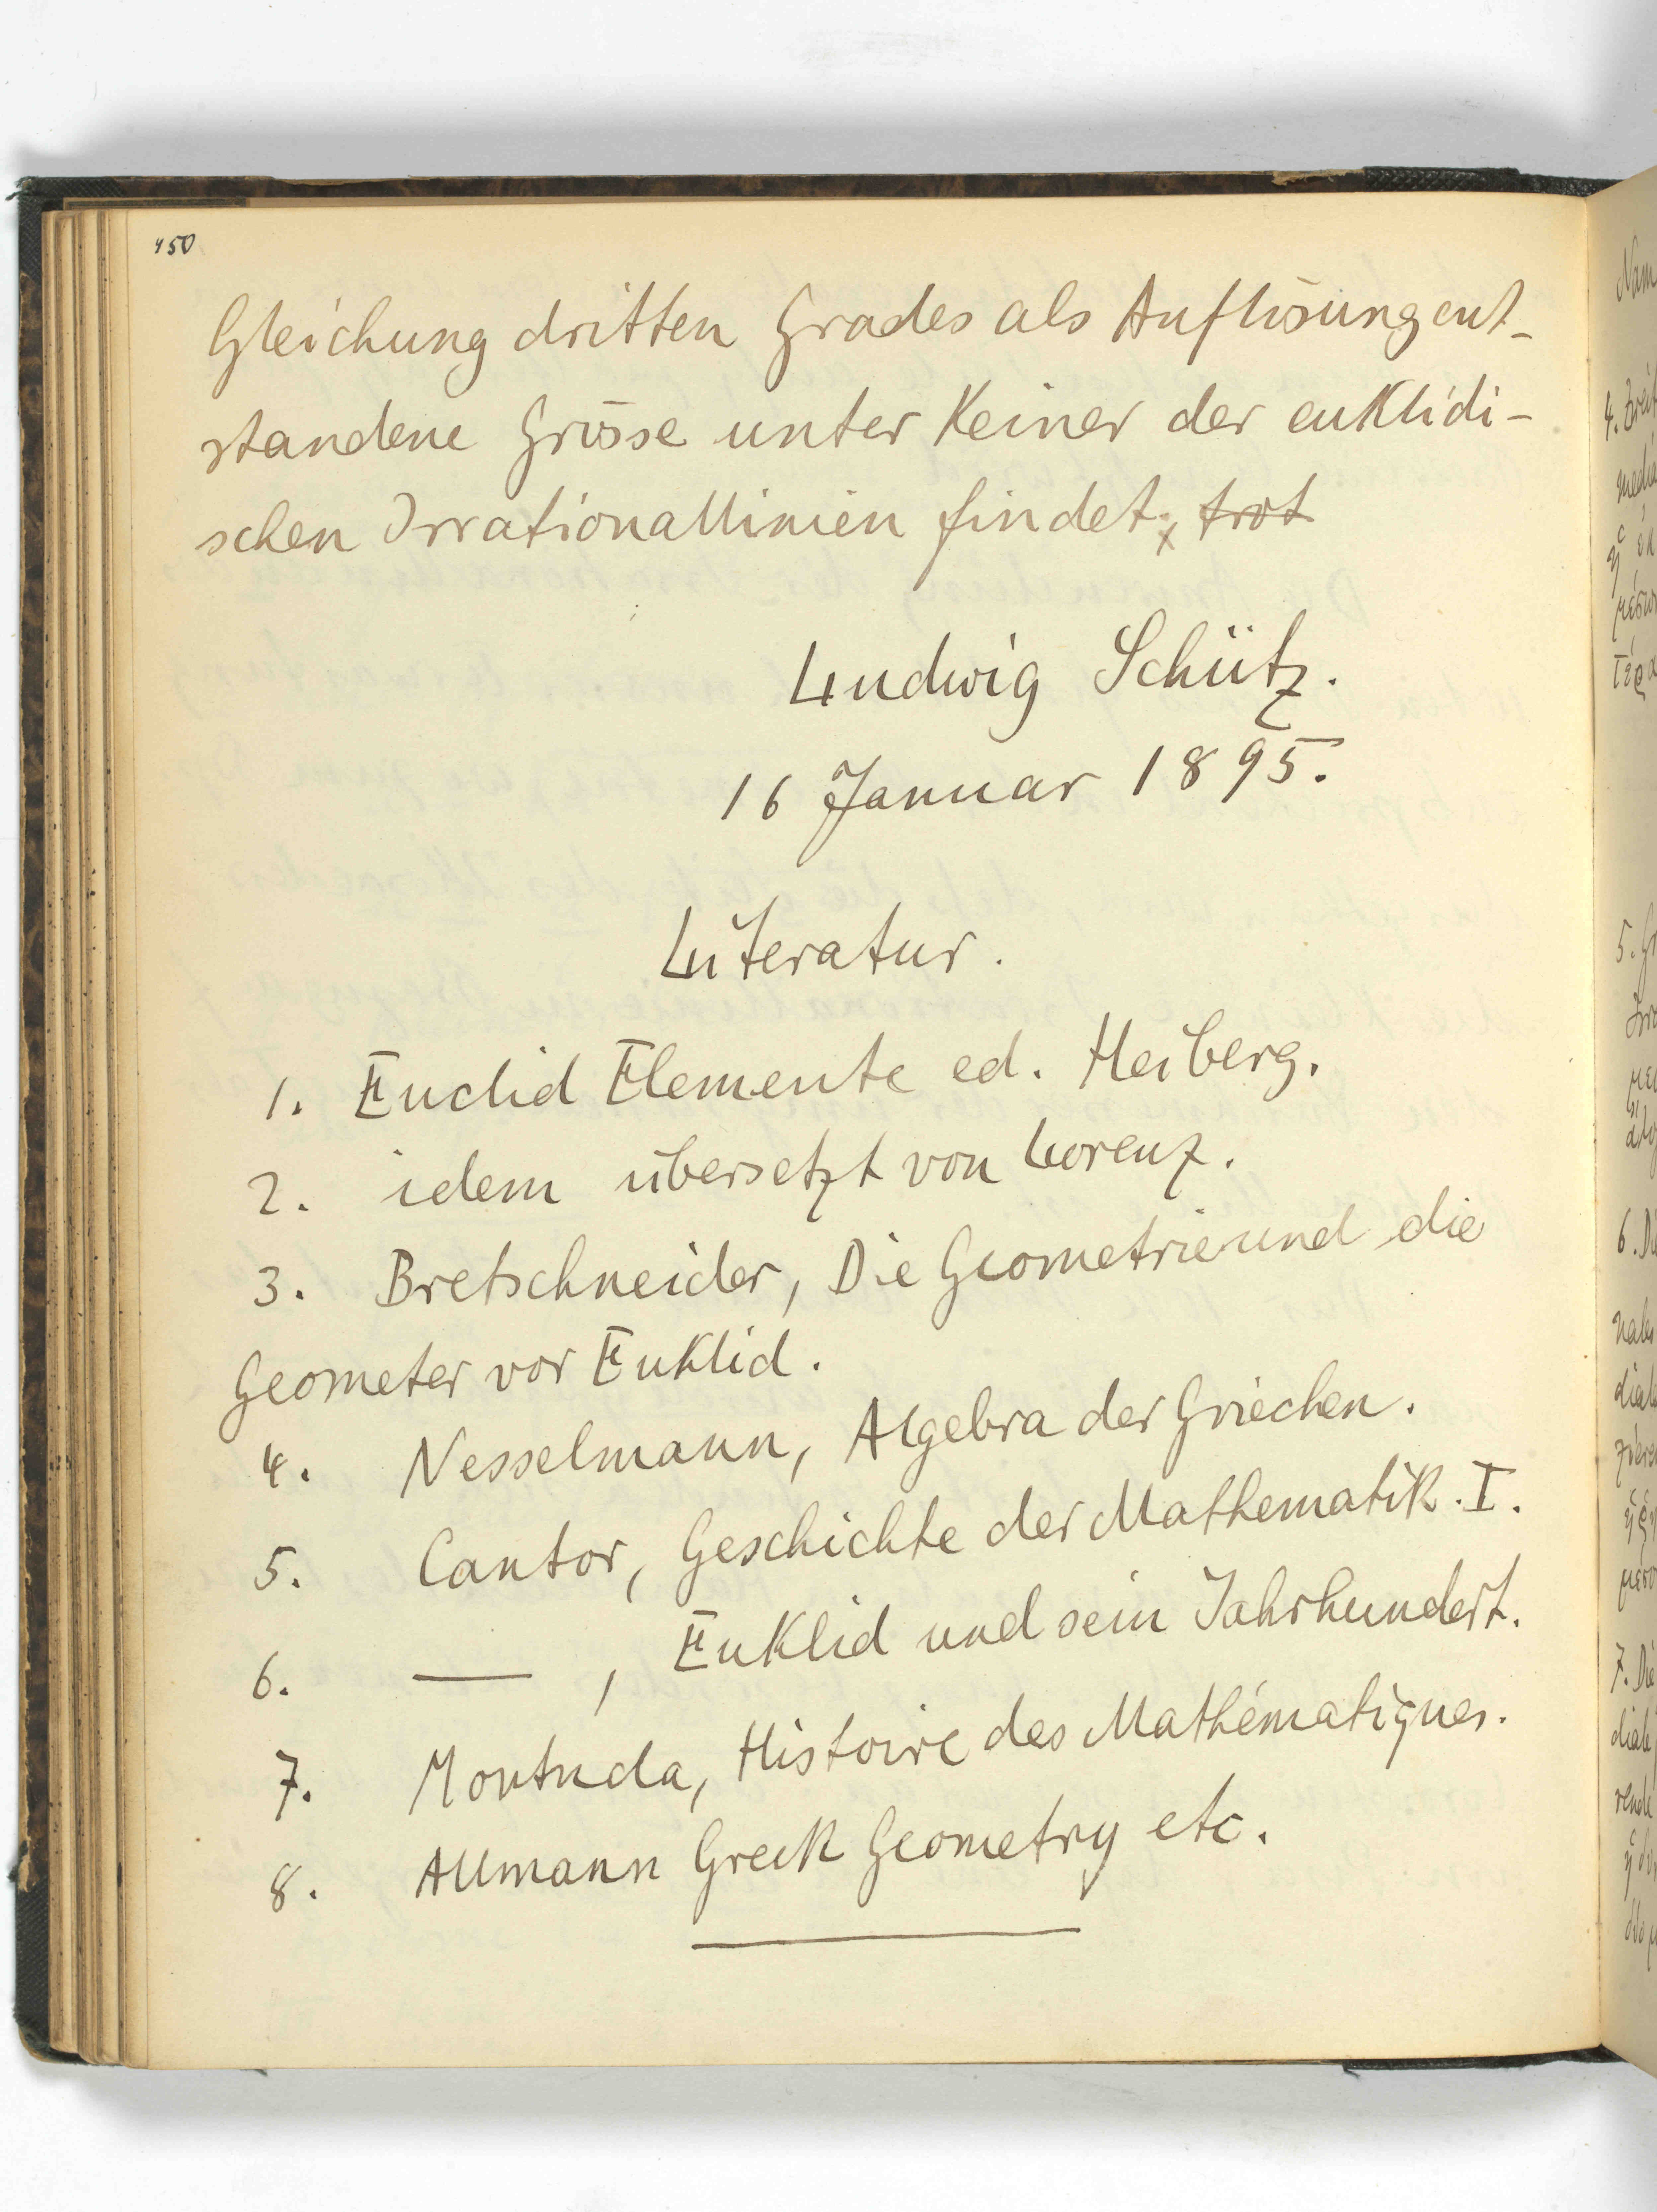 450
Gleichung dritten Grades als Auflösung ent-
standene Grösse unter keiner der euklidi-
schen Irrationallinien findet, trot
Ludwig Schütz.
16 Januar 1895.
Literatur.
1. Euclid Elemente ed. Heiberg.
2. idem übersetzt von Lorenz.
3. Bretschneider, Die Geometrie und die
Geometer vor Euklid.
4. Nesselmann, Algebra der Griechen.
5. Cantor, Geschichte der Mathematik. I.
6. — , Euklid und sein Jahrhundert.
7. Montucla, Histoire des Mathématiques.
8. Allmann Greek Geometry etc.
4.
5.
6. Die
7. Die